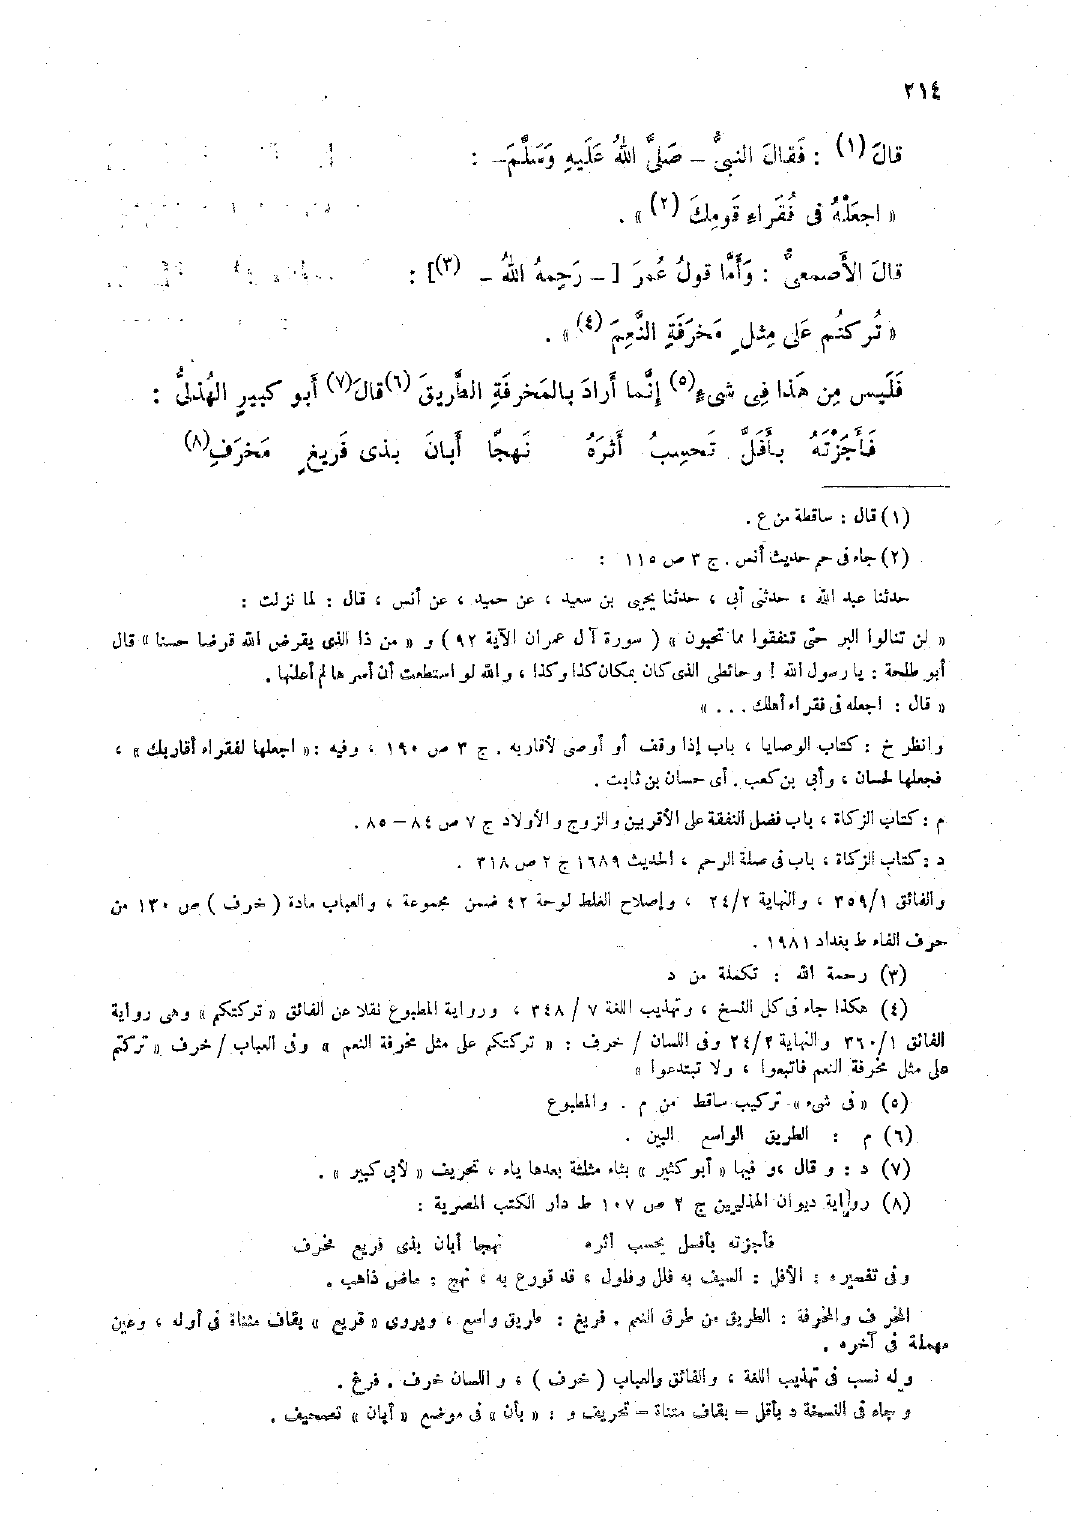 ٢١٤
قالَ (١) : فَقالَ النبىُّ – صَلَّى اللهُ عَلَيهِ وَسَلَّمَ– :
« اجعَلْهُ فى فُقَراءِ قَومِكَ (٢) » .
قالَ الأَصمعىُّ : وَأَمَّا قولُ عُمرَ [ – رَحِمهُ اللهُ – (٣)] :
« تُركتُم عَلى مِثلِ مَخرَفَةِ النَّعِمَ (٤) » .
فَلَيس مِن هَذا فِى شىءٍ (٥) إنَّما أَرادَ بالمَخرفَةِ الطَّريقَ (٦) قالَ (٧) أَبو كبيرٍ الهُذلىُّ :
فَأَجَزْتَهُ بأَفَلَّ تَحسِبُ أَثرَهُ نَهجًا أَبانَ بذى فَريغٍ مَخرَفِ (٨)
(١) قال : ساقطة من ع .
(٢) جاء فى حم حديث أنس . ج ٣ ص ١١٥ :
حدثنا عبد الله ، حدثنى أبى ، حدثنا يحيى بن سعيد ، عن حميد ، عن أنس ، قال : لما نزلت :
« لن تنالوا البر حتى تنفقوا مما تحبون » ( سورة آل عمران الآية ٩٢ ) و « من ذا الذى يقرض الله قرضا حسنا » قال
أبو طلحة : يا رسول الله ! وحائطى الذى كان بمكان كذا وكذا ، والله لو استطعت أن أسرها لم أعلنها .
« قال : اجعله فى فقراء أهلك . . . »
وانظر خ : كتاب الوصايا ، باب إذا وقف أو أوصى لأقاربه . ج ٣ ص ١٩٠ ، وفيه : « اجعلها لفقراء أقاربك » ،
فجعلها لحسان ، وأبى بن كعب . أى حسان بن ثابت .
م : كتاب الزكاة ، باب فضل النفقة على الأقربين والزوج والأولاد ج ٧ ص ٨٤ – ٨٥ .
د : كتاب الزكاة ، باب فى صلة الرحم ، الحديث ١٦٨٩ ج ٢ ص ٣١٨ .
والفائق ٣٥٩/١ ، والنهاية ٢٤/٢ ، وإصلاح الغلط لوحة ٤٢ ضمن مجموعة ، والعباب مادة ( خرف ) ص ١٣٠ من
حرف الفاء ط بغداد ١٩٨١ .
(٣) رحمة الله : تكملة من د
(٤) هكذا جاء فى كل النسخ ، وتهذيب اللغة ٧ / ٣٤٨ ، ورواية المطبوع نقلا عن الفائق « تركتكم » وهى رواية
الفائق ٣٦٠/١ والنهاية ٢٤/٢ وفى اللسان / خرف : « تركتكم على مثل مخرفة النعم » وفى العباب / خرف « تركتم
على مثل مخرفة النعم فاتبعوا ، ولا تبتدعوا »
(٥) « فى شىء » تركيب ساقط من م . والمطبوع
(٦) م : الطريق الواسع البين .
(٧) د : وقال ، وفيها « أبو كثير » بثاء مثلثة بعدها ياء ، تحريف « لأبى كبير » .
(٨) رواية ديوان الهذليين ج ٢ ص ١٠٧ ط دار الكتب المصرية :
فأجزته بأفسل يحسب أثره نهجا أبان بذى فريغ مخرف
وفى تفسيره : الأفل : السيف به فلل وفلول ، قد قورع به ، نهج : ماض ذاهب .
المخرف والمخرفة : الطريق من طرق النعم . فريغ : طريق واسع ، ويروى « قريع » بقاف مثناة فى أوله ، وعين
مهملة فى آخره .
وله نسب فى تهذيب اللغة ، والفائق والعباب ( خرف ) ، واللسان خرف . فرغ .
وجاء فى النسخة د بأقل – بقاف مثناة – تحريف و : « بأن » فى موضع « أبان » تصحيف .